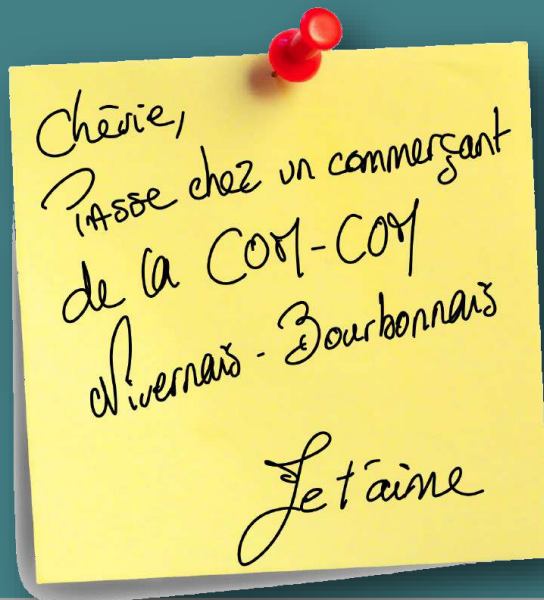 Chérie,
Passe chez un commerçant
de la COM-COM
Nivernais - Bourbonnais
Je t'aime